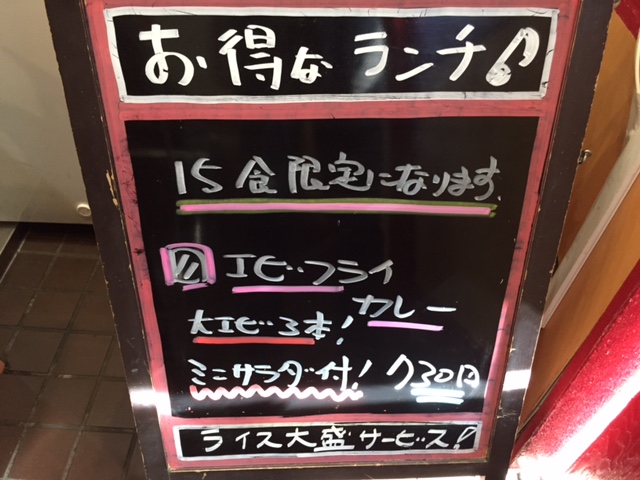 お得なランチ♪
15食限定になります
エビフライ
カレー
大エビ3本!
ミニサラダ付! 730円
ライス大盛サービス!